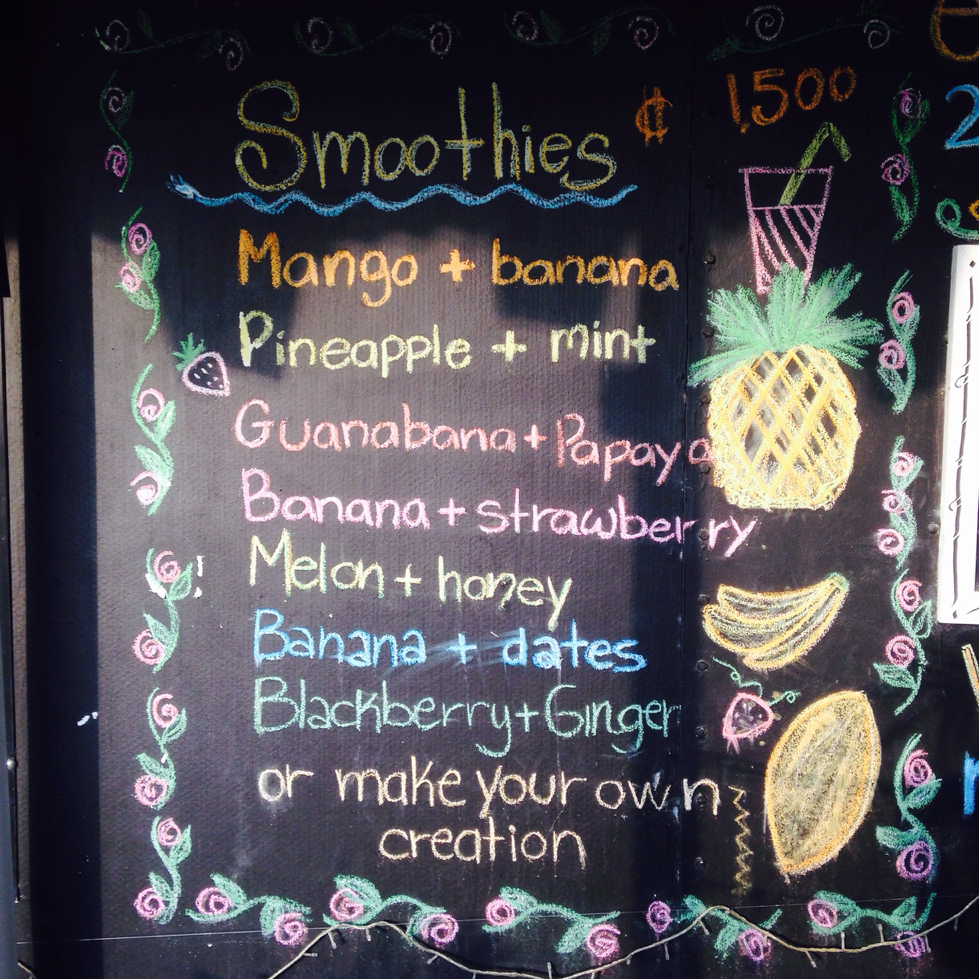 Smoothies ₡ 1,500
Mango + banana
Pineapple + mint
Guanabana + Papaya
Banana + strawberry
Melon + honey
Banana + dates
Blackberry + Ginger
or make your own
creation